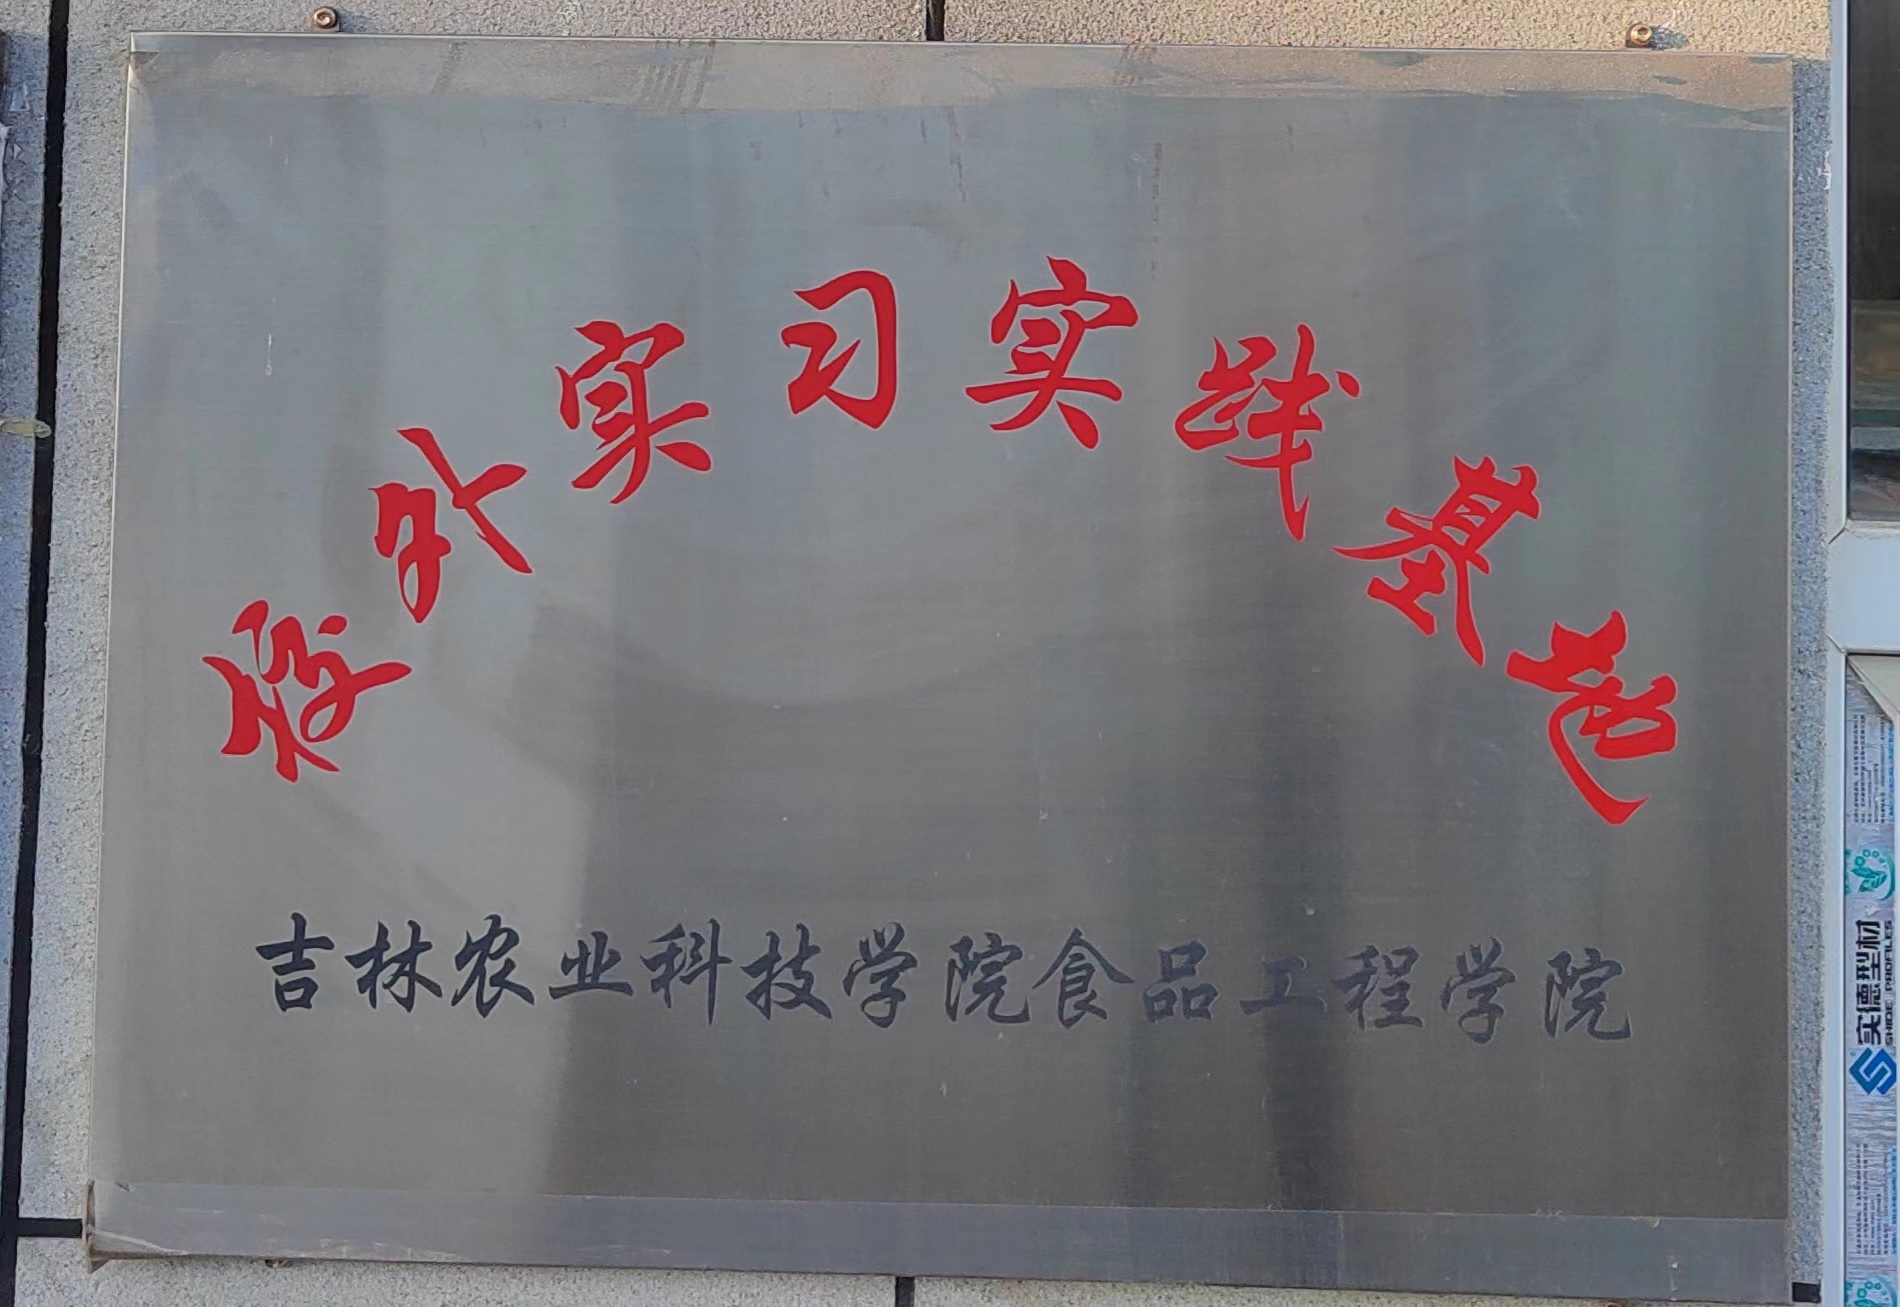 校外实习实践基地
吉林农业科技学院食品工程学院
实德型材
SHIDE PROFILES